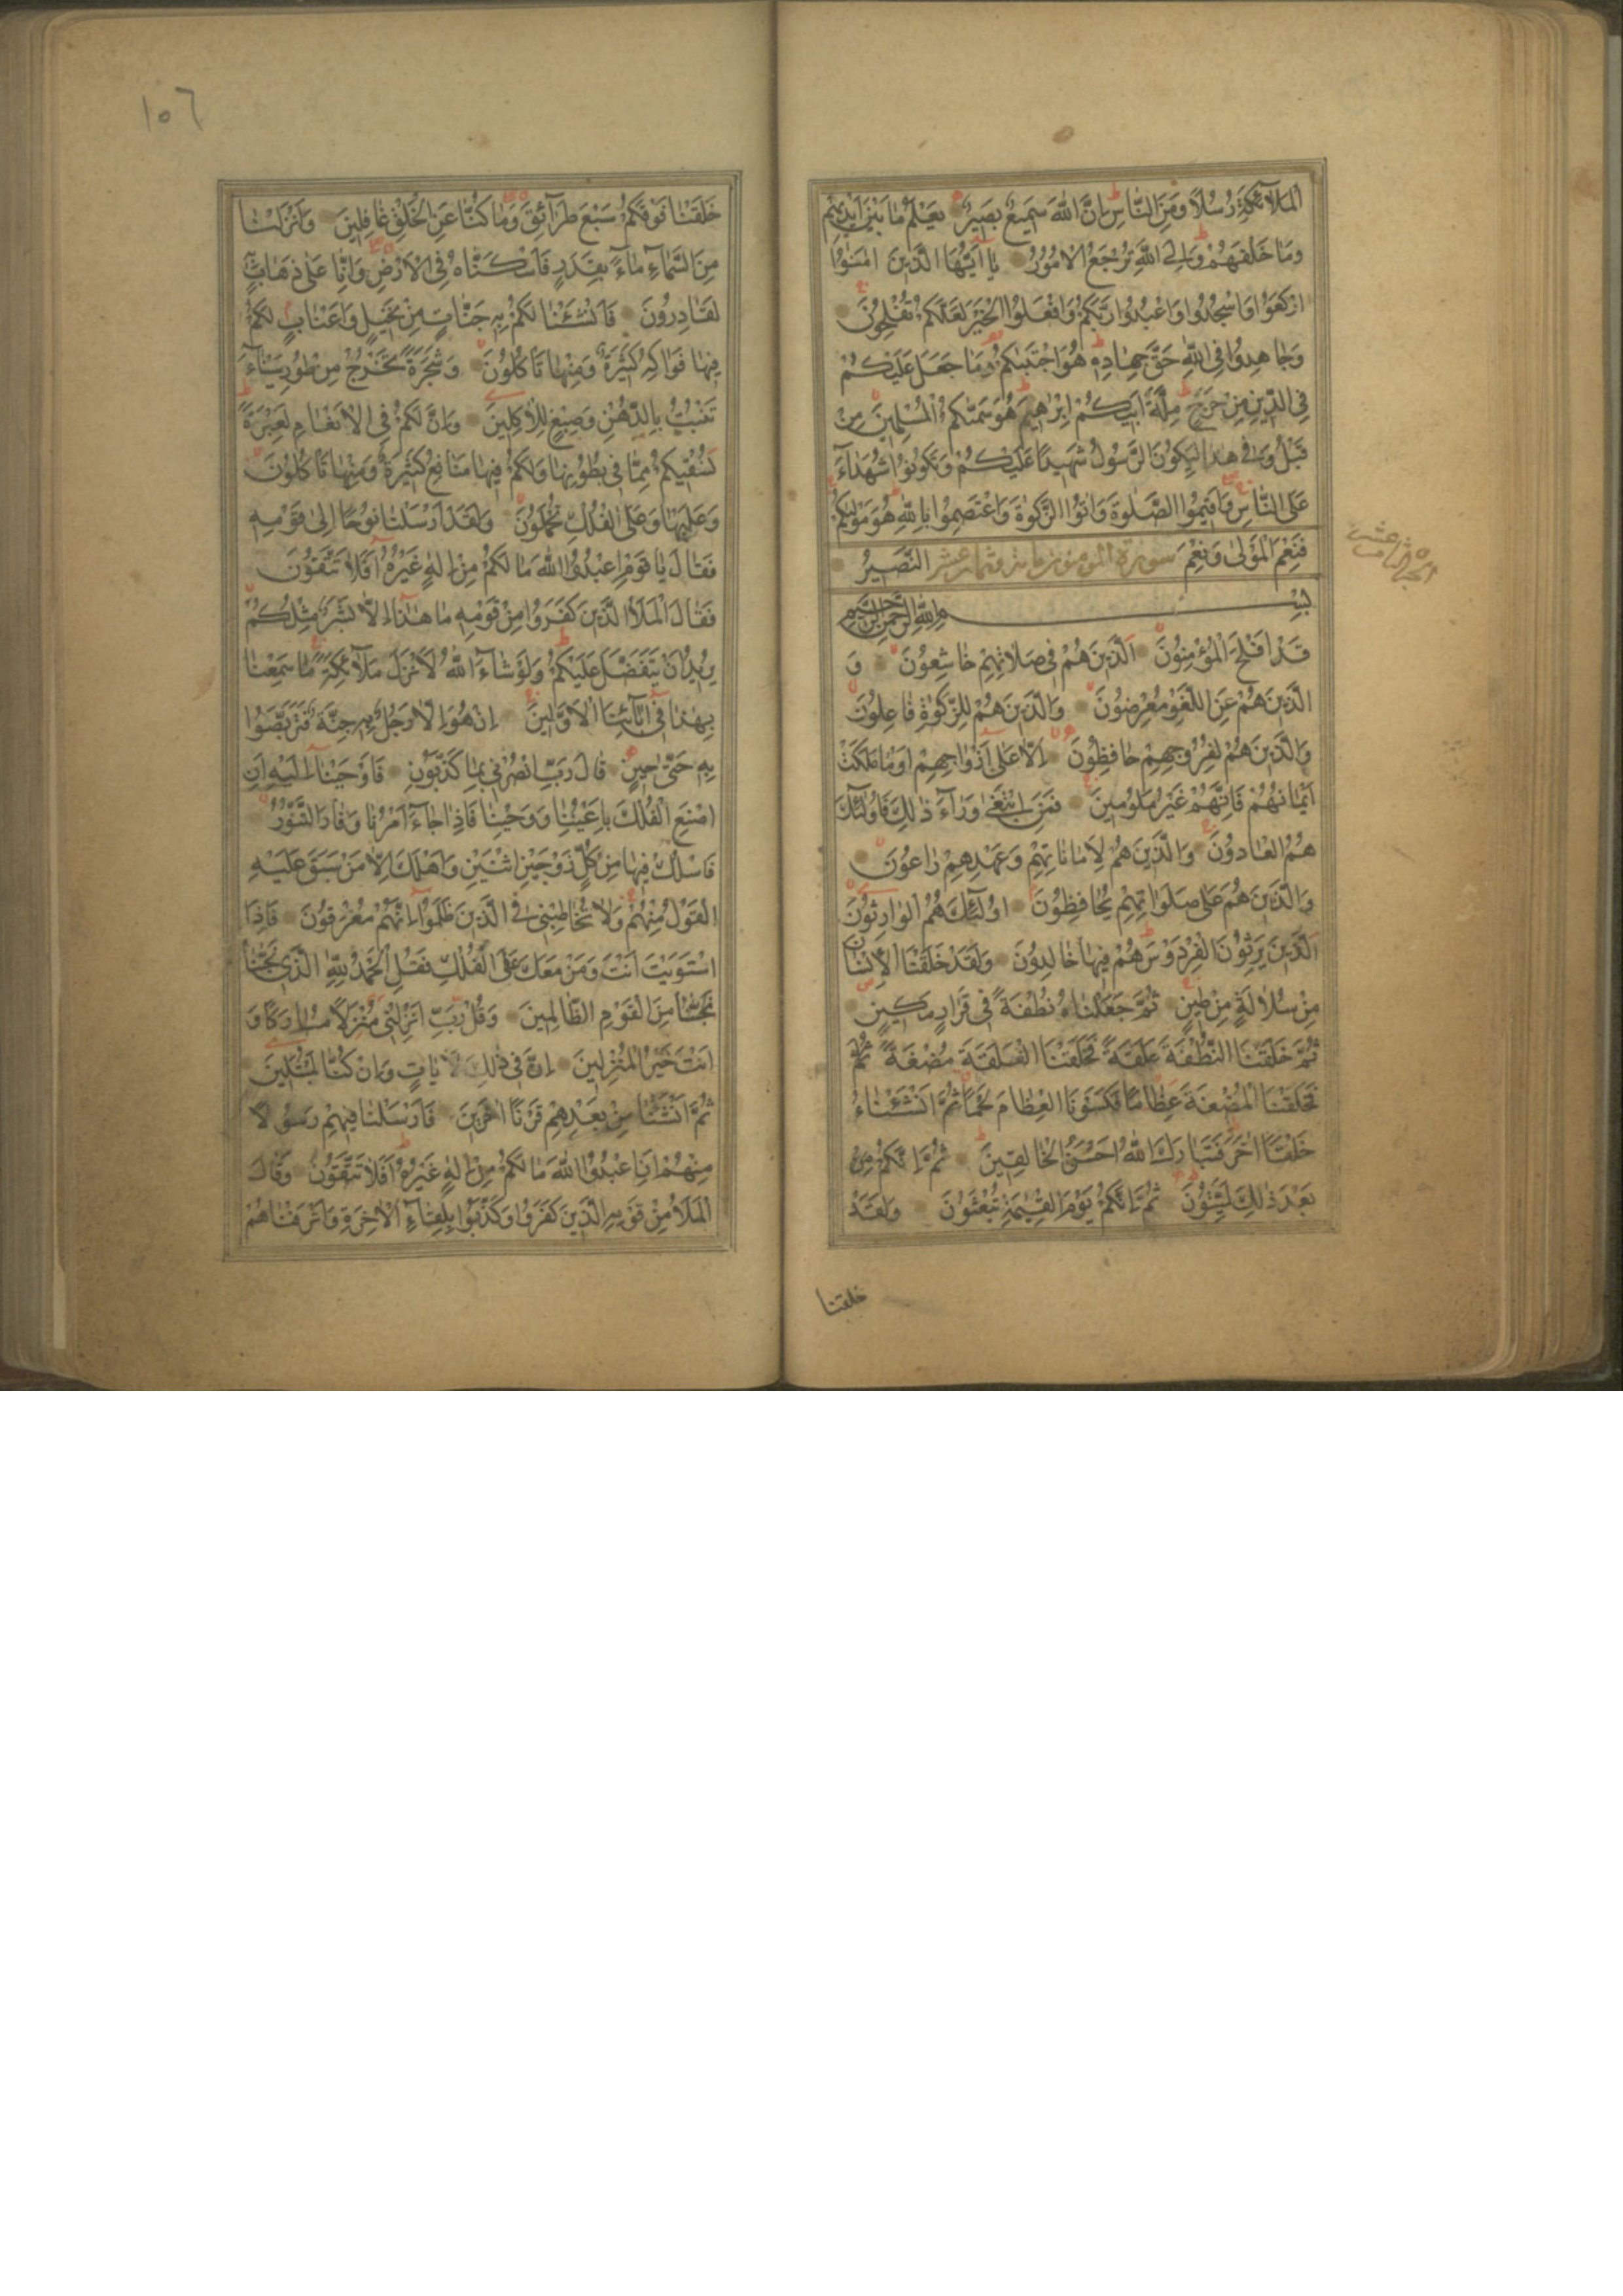 الملآئكة رسلا ومن الناس ان الله سميع بصير يعلم ما بين ايديهم
وما خلفهم والى الله ترجع الامور يا ايها الذين امنوا
اركعوا واسجدوا واعبدوا ربكم وافعلوا الخير لعلكم تفلحون
وجاهدوا فى الله حق جهاده هو اجتبيكم وما جعل عليكم
فى الدين من حرج ملة ابيكم ابرهيم هو سميكم المسلمين من
قبل وفى هذا ليكون الرسول شهيدا عليكم وتكونوا شهداء
على الناس فاقيموا الصلوة واتوا الزكوة واعتصموا بالله هو موليكم
فنعم المولى ونعم النصير
سورة المومنون مائة وثمان عشر
الجزء الثامن عشر
بسم الله الرحمن الرحيم
قد افلح المؤمنون الذين هم فى صلاتهم خاشعون و
الذين هم عن اللغو معرضون والذين هم للزكوة فاعلون
والذين هم لفروجهم حافظون الا على ازواجهم او ما ملكت
ايمانهم فانهم غير ملومين فمن ابتغى ورآء ذلك فاولئك
هم العادون والذين هم لاماناتهم وعهدهم راعون
والذين هم على صلواتهم يحافظون اولئك هم الوارثون
الذين يرثون الفردوس هم فيها خالدون ولقد خلقنا الانسان
من سلالة من طين ثم جعلناه نطفة فى قرار مكين
ثم خلقنا النطفة علقة فخلقنا العلقة مضغة ثم
فخلقنا المضغة عظاما فكسونا العظام لحما ثم انشئناه
خلقا اخر فتبارك الله احسن الخالقين ثم انكم من
بعد ذلك لميتون ثم انكم يوم القيمة تبعثون ولقد
خلقنا
١٠٦
خلقنا فوقكم سبع طرآئق وما كنا عن الخلق غافلين وانزلنا
من السمآء مآء بقدر فاسكناه فى الارض وانا على ذهاب به
لقادرون فانشئنا لكم به جنات من نخيل واعناب لكم
فيها فواكه كثيرة ومنها تاكلون وشجرة تخرج من طور سينآء
تنبت بالدهن وصبغ للاكلين وان لكم فى الانعام لعبرة
نسقيكم مما فى بطونها ولكم فيها منافع كثيرة ومنها تاكلون
وعليها وعلى الفلك تحملون ولقد ارسلنا نوحا الى قومه
فقال يا قوم اعبدوا الله ما لكم من اله غيره افلا تتقون
فقال الملاء الذين كفروا من قومه ما هذا الا بشر مثلكم
يريد ان يتفضل عليكم ولو شاء الله لانزل ملآئكة ما سمعنا
بهذا فى آبآئنا الاولين ان هو الا رجل به جنة فتربصوا
به حتى حين قال رب انصرنى بما كذبون فاوحينا اليه ان
اصنع الفلك باعيننا ووحينا فاذا جاء امرنا وفار التنور
فاسلك فيها من كل زوجين اثنين واهلك الا من سبق عليه
القول منهم ولا تخاطبنى فى الذين ظلموا انهم مغرقون فاذا
استويت انت ومن معك على الفلك فقل الحمد لله الذى نجانا
نجانا من القوم الظالمين وقل رب انزلنى منزلا مباركا و
انت خير المنزلين ان فى ذلك لايات وان كنا لمبتلين
ثم انشئنا من بعدهم قرنا اخرين فارسلنا فيهم رسولا
منهم ان اعبدوا الله ما لكم من اله غيره افلا تتقون وقال
الملا من قومه الذين كفروا وكذبوا بلقآء الاخرة واترفناهم